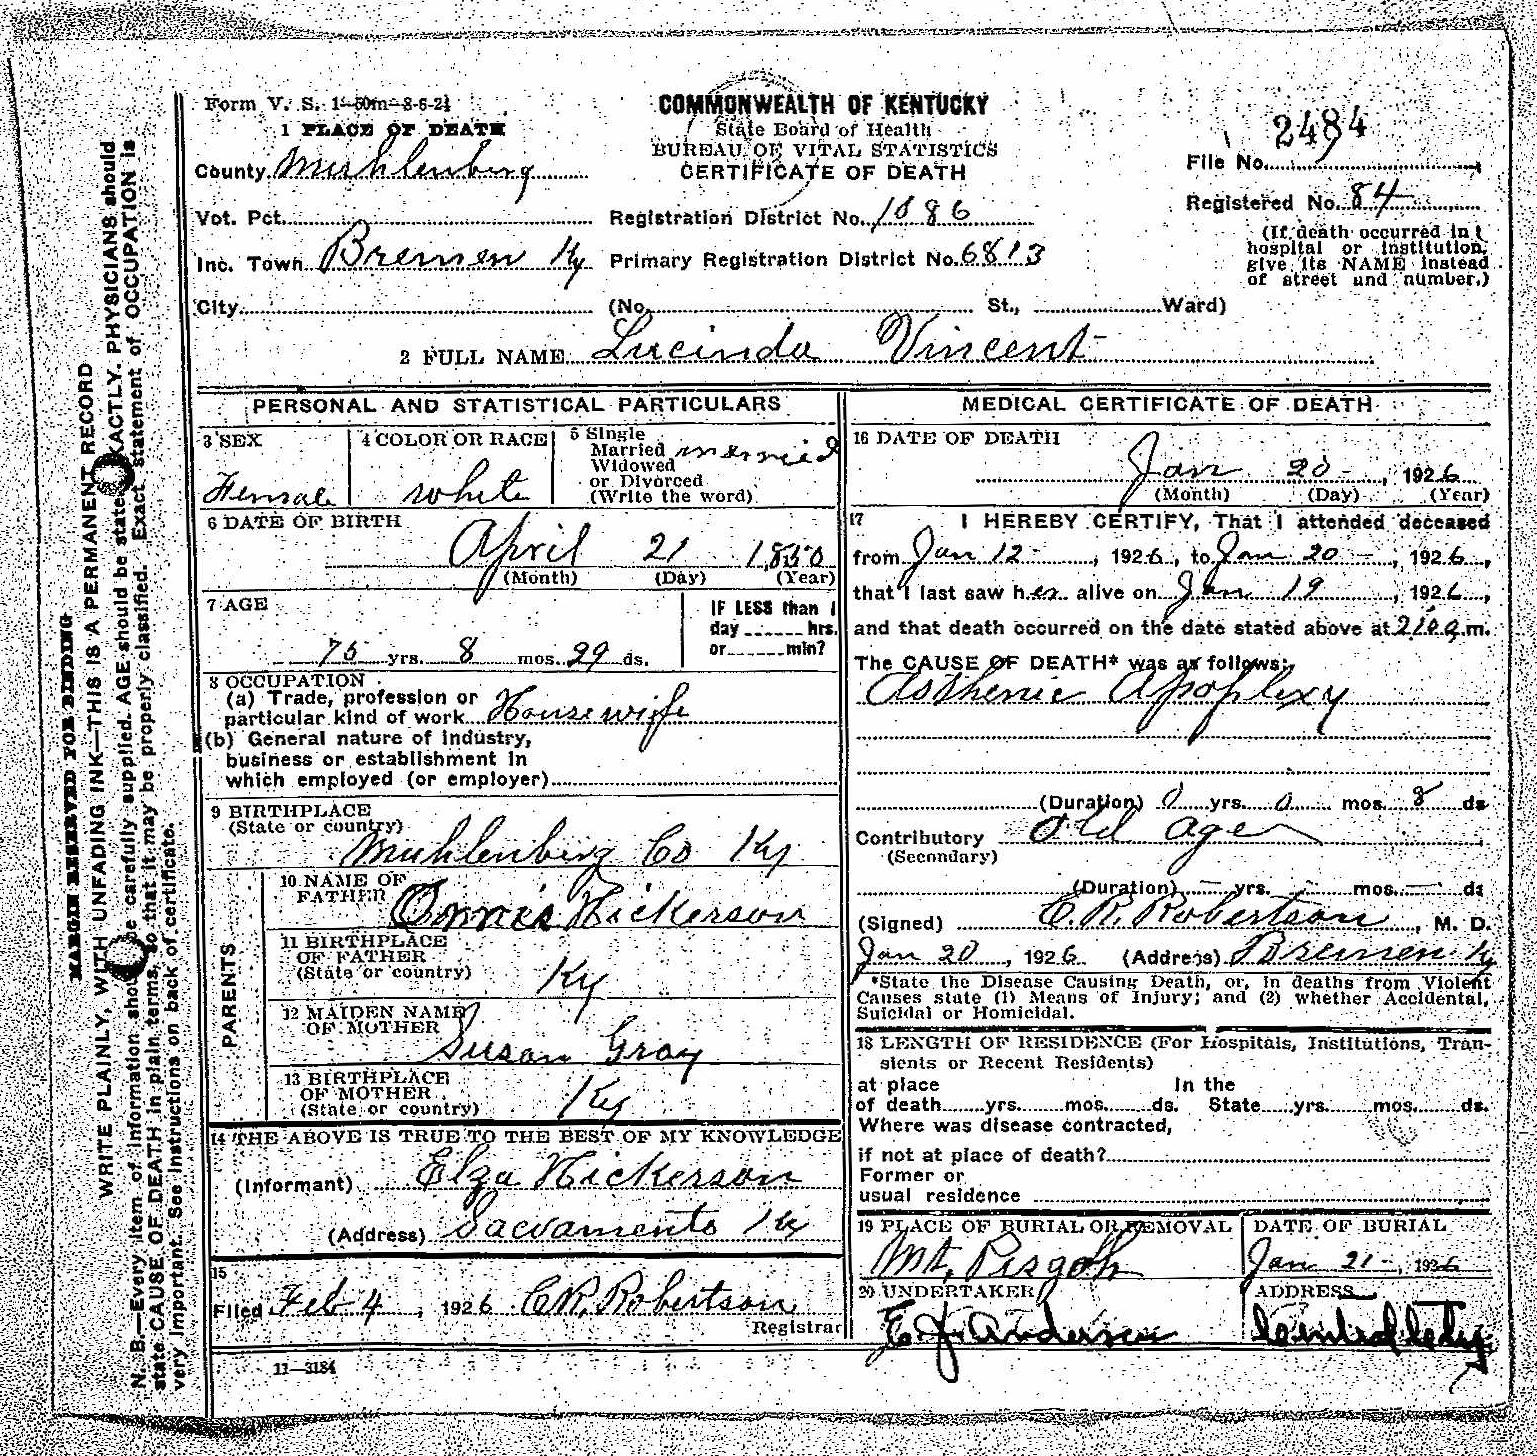 Form V. S. 1—50m—8-6-21
COMMONWEALTH OF KENTUCKY
State Board of Health
BUREAU OF VITAL STATISTICS
CERTIFICATE OF DEATH
2484
File No.
Registered No. 84
(If death occurred in
hospital or institution,
give its NAME instead
of street and number.)
1 PLACE OF DEATH
County Muhlenburg
Vot. Pct. Registration District No. 1086
Inc. Town Bremen Ky Primary Registration District No. 6813
City (No. St., Ward)
2 FULL NAME Lucinda Vincent
PERSONAL AND STATISTICAL PARTICULARS
3 SEX
Female
4 COLOR OR RACE
White
5 Single
Married
Widowed
or Divorced
(Write the word)
married
6 DATE OF BIRTH
April 21 1850
(Month) (Day) (Year)
7 AGE
75 yrs. 8 mos. 29 ds.
IF LESS than 1
day hrs.
or min?
8 OCCUPATION
(a) Trade, profession or
particular kind of work Housewife
(b) General nature of industry,
business or establishment in
which employed (or employer)
9 BIRTHPLACE
(State or country)
Muhlenburg Co Ky
PARENTS
10 NAME OF
FATHER
Hickerson
11 BIRTHPLACE
OF FATHER
(State or country)
Ky
12 MAIDEN NAME
OF MOTHER
Susan Gray
13 BIRTHPLACE
OF MOTHER
(State or country)
Ky
14 THE ABOVE IS TRUE TO THE BEST OF MY KNOWLEDGE
(Informant) Elza Hickerson
(Address) Sacramento Ky
15
Filed Feb 4, 1926 C.R. Robertson
Registrar
11—3184
MEDICAL CERTIFICATE OF DEATH
16 DATE OF DEATH
Jan 20, 1926
(Month) (Day) (Year)
17 I HEREBY CERTIFY, That I attended deceased
from Jan 12, 1926, to Jan 20, 1926,
that I last saw her alive on Jan 19, 1926,
and that death occurred on the date stated above at 210 a.m.
The CAUSE OF DEATH* was as follows:
Asthenic Apoplexy
(Duration) 0 yrs. 0 mos. 8 ds
Contributory Old age
(Secondary)
(Duration) — yrs. — mos. — ds
(Signed) C.R. Robertson, M. D.
Jan 20, 1926. (Address) Bremen Ky
*State the Disease Causing Death, or, in deaths from Violent
Causes state (1) Means of Injury; and (2) whether Accidental,
Suicidal or Homicidal.
18 LENGTH OF RESIDENCE (For Hospitals, Institutions, Tran-
sients or Recent Residents)
at place In the
of death yrs. mos. ds. State yrs. mos. ds.
Where was disease contracted,
if not at place of death?
Former or
usual residence
19 PLACE OF BURIAL OR REMOVAL
Mt. Pisgah
DATE OF BURIAL
Jan 21-, 1926
20 UNDERTAKER
E. J. Anderson
ADDRESS
Central City
MARGIN RESERVED FOR BINDING
WRITE PLAINLY, WITH UNFADING INK—THIS IS A PERMANENT RECORD
N. B.—Every item of information should be carefully supplied. AGE should be stated EXACTLY. PHYSICIANS should
state CAUSE OF DEATH in plain terms, so that it may be properly classified. Exact statement of OCCUPATION is
very important. See instructions on back of certificate.